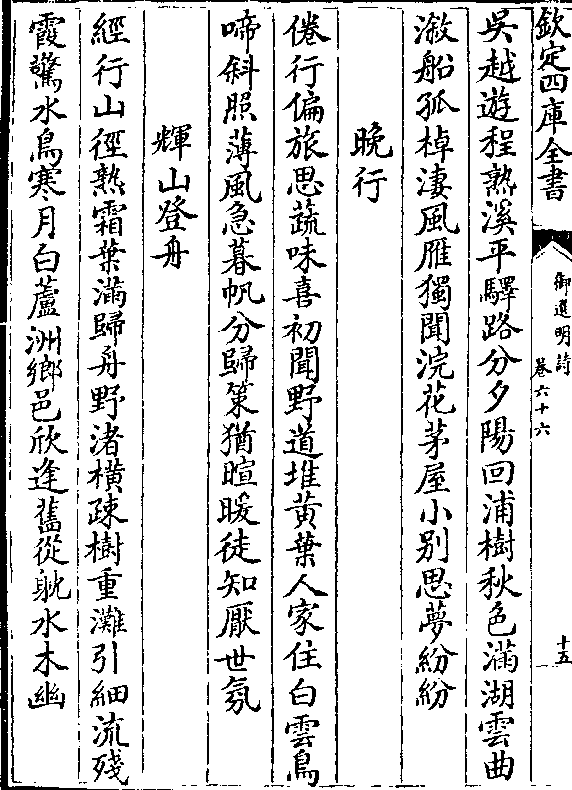 欽定四庫全書
御選明詩
卷六十六
十五
吳越遊程熟溪平驛路分夕陽回浦樹秋色滿湖雲曲
漵船孤棹淒風雁獨聞浣花茅屋小别思夢紛紛
晚行
倦行偏旅思蔬味喜初聞野道堆黄葉人家住白雲鳥
啼斜照薄風急暮帆分歸策猶暄暖徒知厭世氛
輝山登舟
經行山徑熟霜葉滿歸舟野渚横疎樹重灘引細流殘
霞驚水鳥寒月白蘆洲鄉邑欣逢舊從躭水木幽